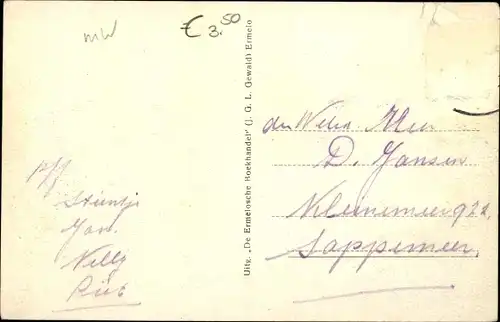 mw
€ 3.50
Uitg. „De Ermelosche Boekhandel" (J. G. L. Gewald) Ermelo
den Weled. Heer
D. Jansen
Kleinemeer 922
Sappemeer
p/f
Stientje
Jan.
Nelly
Piet